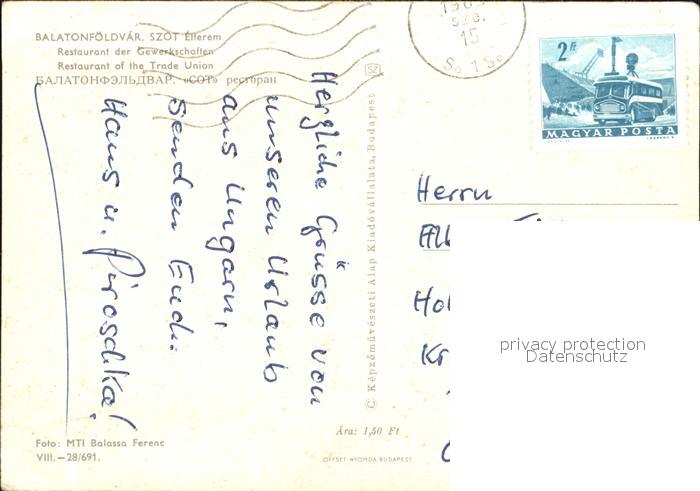 BALATONFÖLDVÁR. SZOT Étterem
Restaurant der Gewerkschaften
Restaurant of the Trade Union
БАЛАТОНФЭЛЬДВАР. «СОТ» ресторан
Herzliche Grüsse von
unseren Urlaub
aus Ungarn,
senden Euch:
Hans u. Piroschka!
Foto: MTI Balassa Ferenc
VIII.—28/691.
SZ
© Képzőművészeti Alap Kiadóvállalata, Budapest
Ára: 1,50 Ft
OFFSET NYOMDA BUDAPEST
SZO.
15
2 Ft
MAGYAR POSTA
Herrn
Hol
Kr
privacy protection
Datenschutz